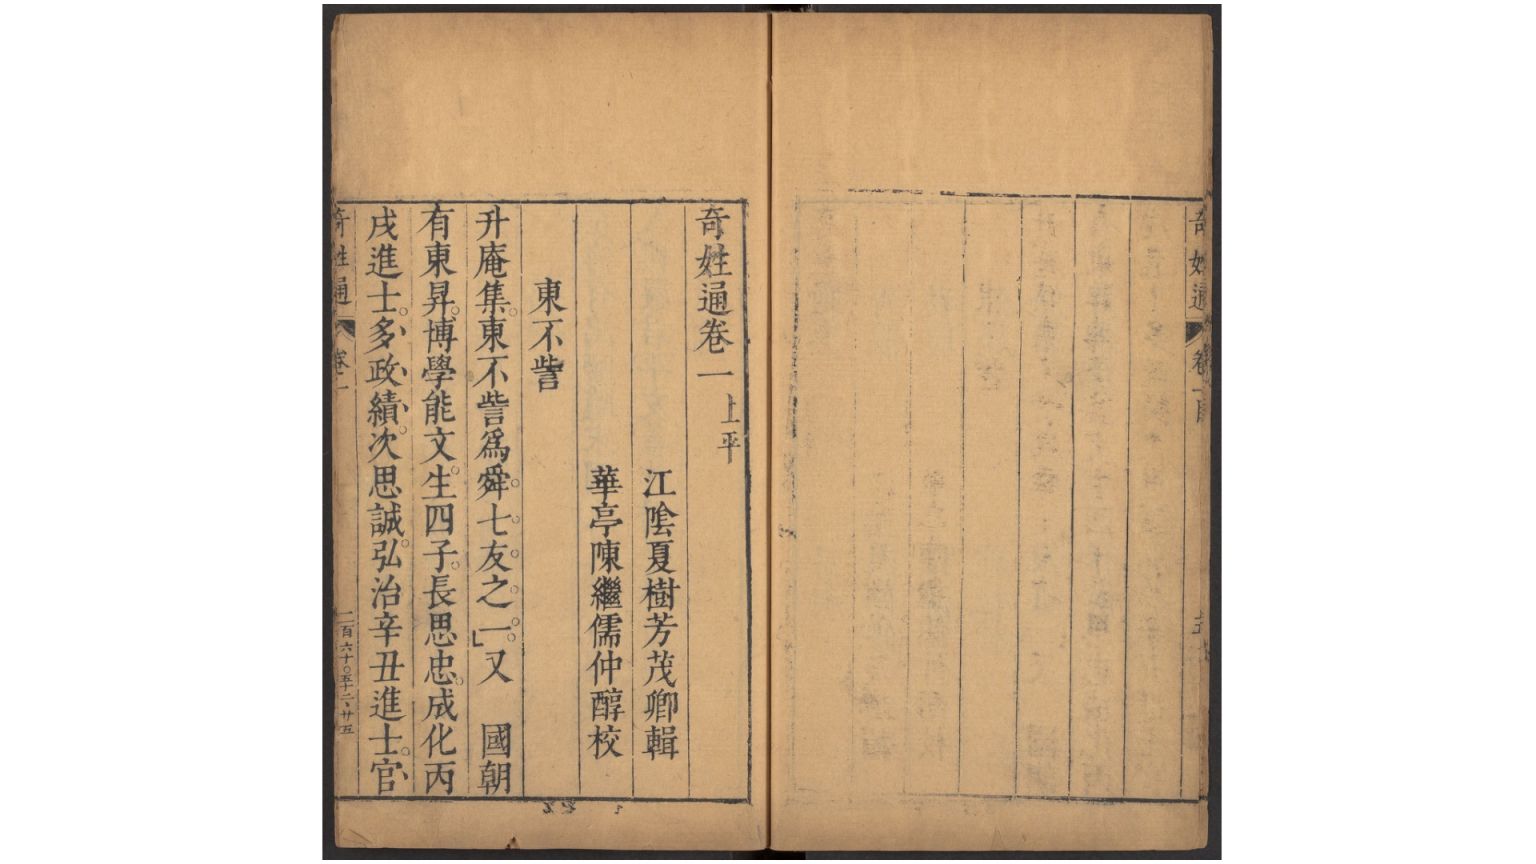 奇姓通卷一 上平
江陰夏樹芳茂卿輯
華亭陳繼儒仲醇校
東不訾
升庵集。東不訾爲舜。七。友。之。一。」又 國朝
有東昇。博學能文。生四子。長思忠。成化丙
戌進士。多政績。次思誠。弘治辛丑進士。官
奇姓通 卷一
二百六十〇五十二、廿五
奇姓通 卷一